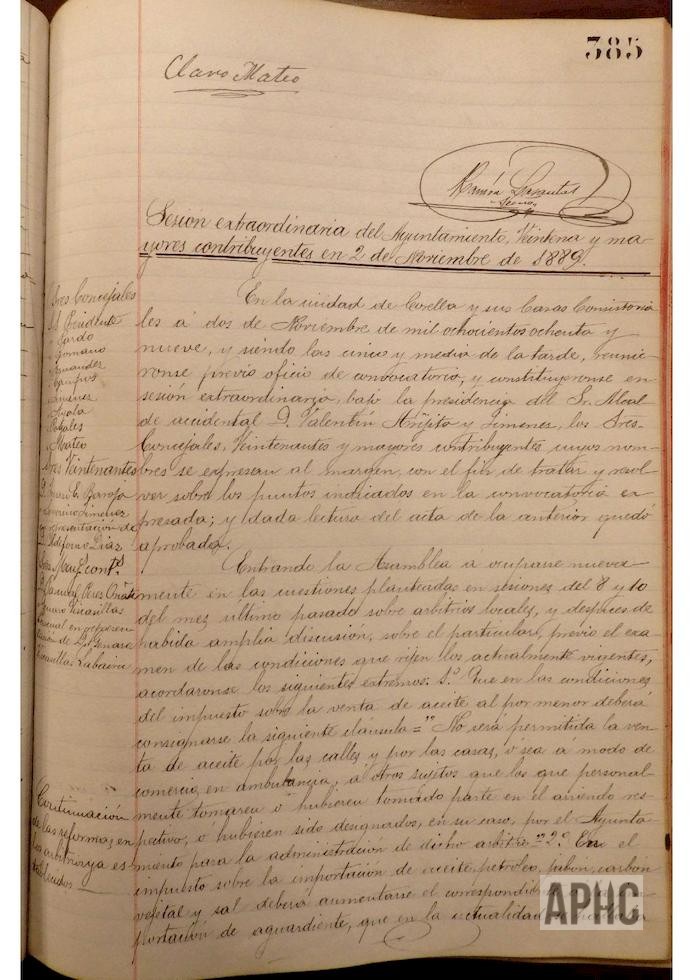 385
Claro Mateo
Ramón
Secrio
Sesión extraordinaria del Ayuntamiento, Veintena y ma-
yores contribuyentes en 2 de Noviembre de 1889.
Sres Concejales
Pardo
Romano
Campos
Jimenez
Ayala
Mateo
Sres Veintenantes
representación de
Ildefonso Diaz
contes
Perez
en represen-
tación de Dn Genaro
Continuación
de las reformas en
los arbitrios ya es-
tablecidos
En la ciudad de Corella y sus Casas Consistoria-
les á dos de Noviembre de mil ochocientos ochenta y
nueve, y siendo las cinco y media de la tarde, reunie-
ronse previo oficio de convocatoria, y constituyeronse en
sesión extraordinaria, bajo la presidencia del Sr. Alcal-
de accidental D. Valentín y Jimenez, los Sres.
Concejales, Veintenantes y mayores contribuyentes cuyos nom-
bres se expresan al margen, con el fin de tratar y resol-
ver sobre los puntos indicados en la convocatoria ex-
presada; y dada lectura del acta de la anterior quedó
aprobada.
Entrando la Asamblea á ocuparse nueva-
mente en las cuestiones planteadas en sesiones del 8 y 10
del mes último pasado sobre arbitrios locales, y despues de
habida amplia discusión, sobre el particular, previo el exa-
men de las condiciones que rijen los actualmente vigentes,
acordaronse los siguientes extremos: 1.º Que en las condiciones
del impuesto sobre la venta de aceite al por menor deberá
consignarse la siguiente cláusula = "No será permitida la ven-
ta de aceite por las calles y por las casas, ó sea a modo de
comercio en ambulancia, á otros sujetos que los que personal-
mente tomaren ó hubieren tomado parte en el arriendo res-
pectivo, ó hubieren sido designados, en su caso, por el Ayunta-
miento para la administración de dicho arbitrio" = 2.º En el
impuesto sobre la importación de aceite, petroleo, jabon, carbón
vejetal y sal deberá aumentarse el correspondiente
portación de aguardiente, que en la actualidad
APHC